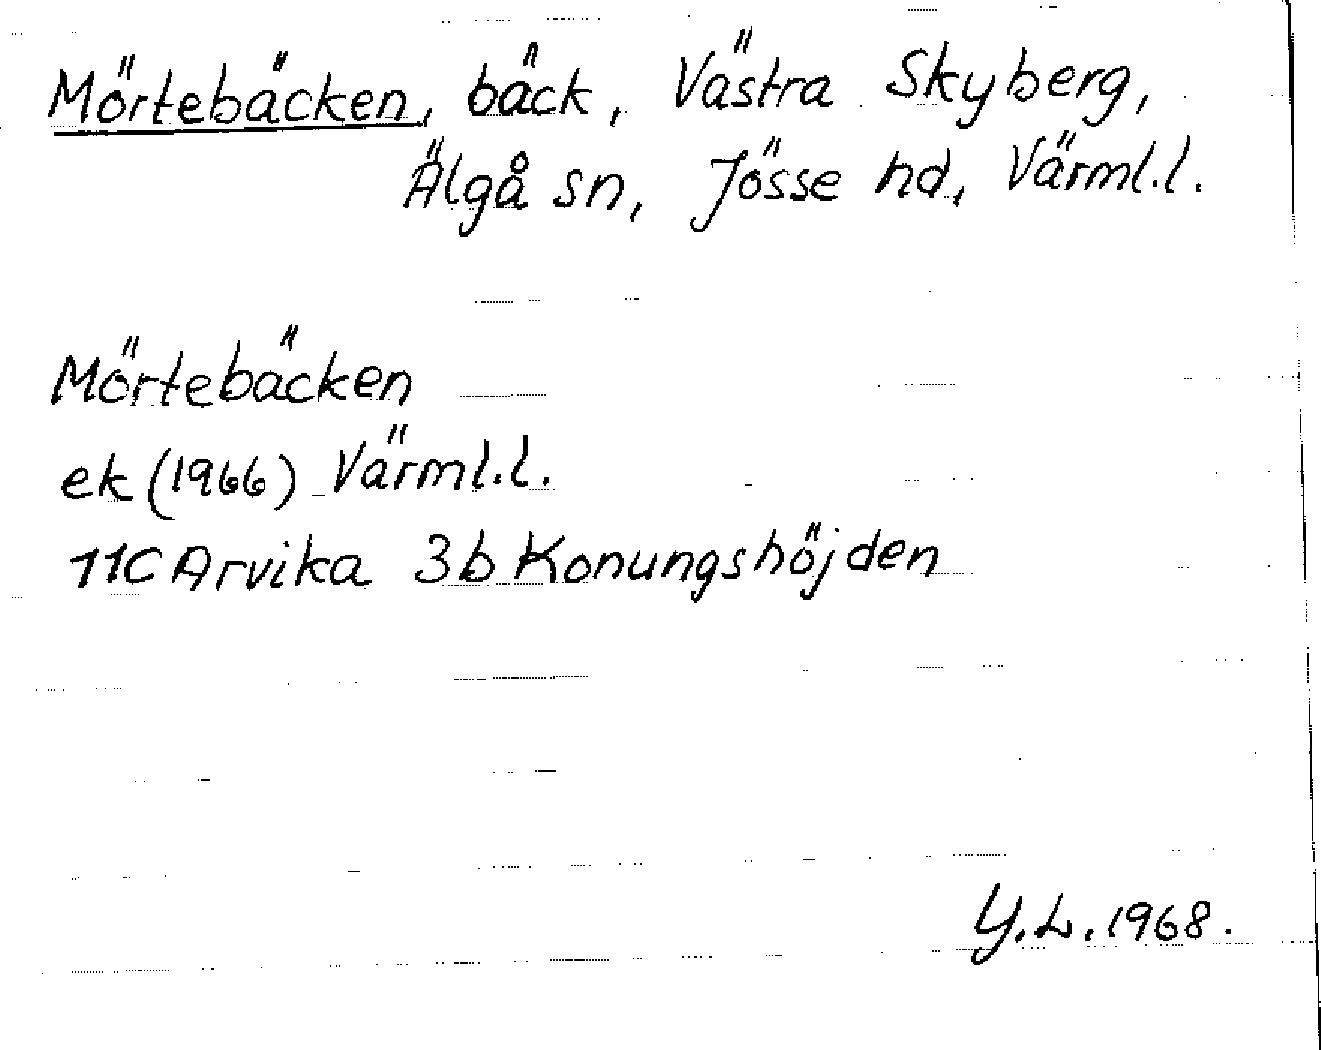 Mörtebäcken, bäck, Västra Skyberg,
Älgå sn, Jösse hd, Värml.l.
Mörtebäcken
ek (1966) Värml.l.
11C Arvika 3b Konungshöjden
Y.L. 1968.